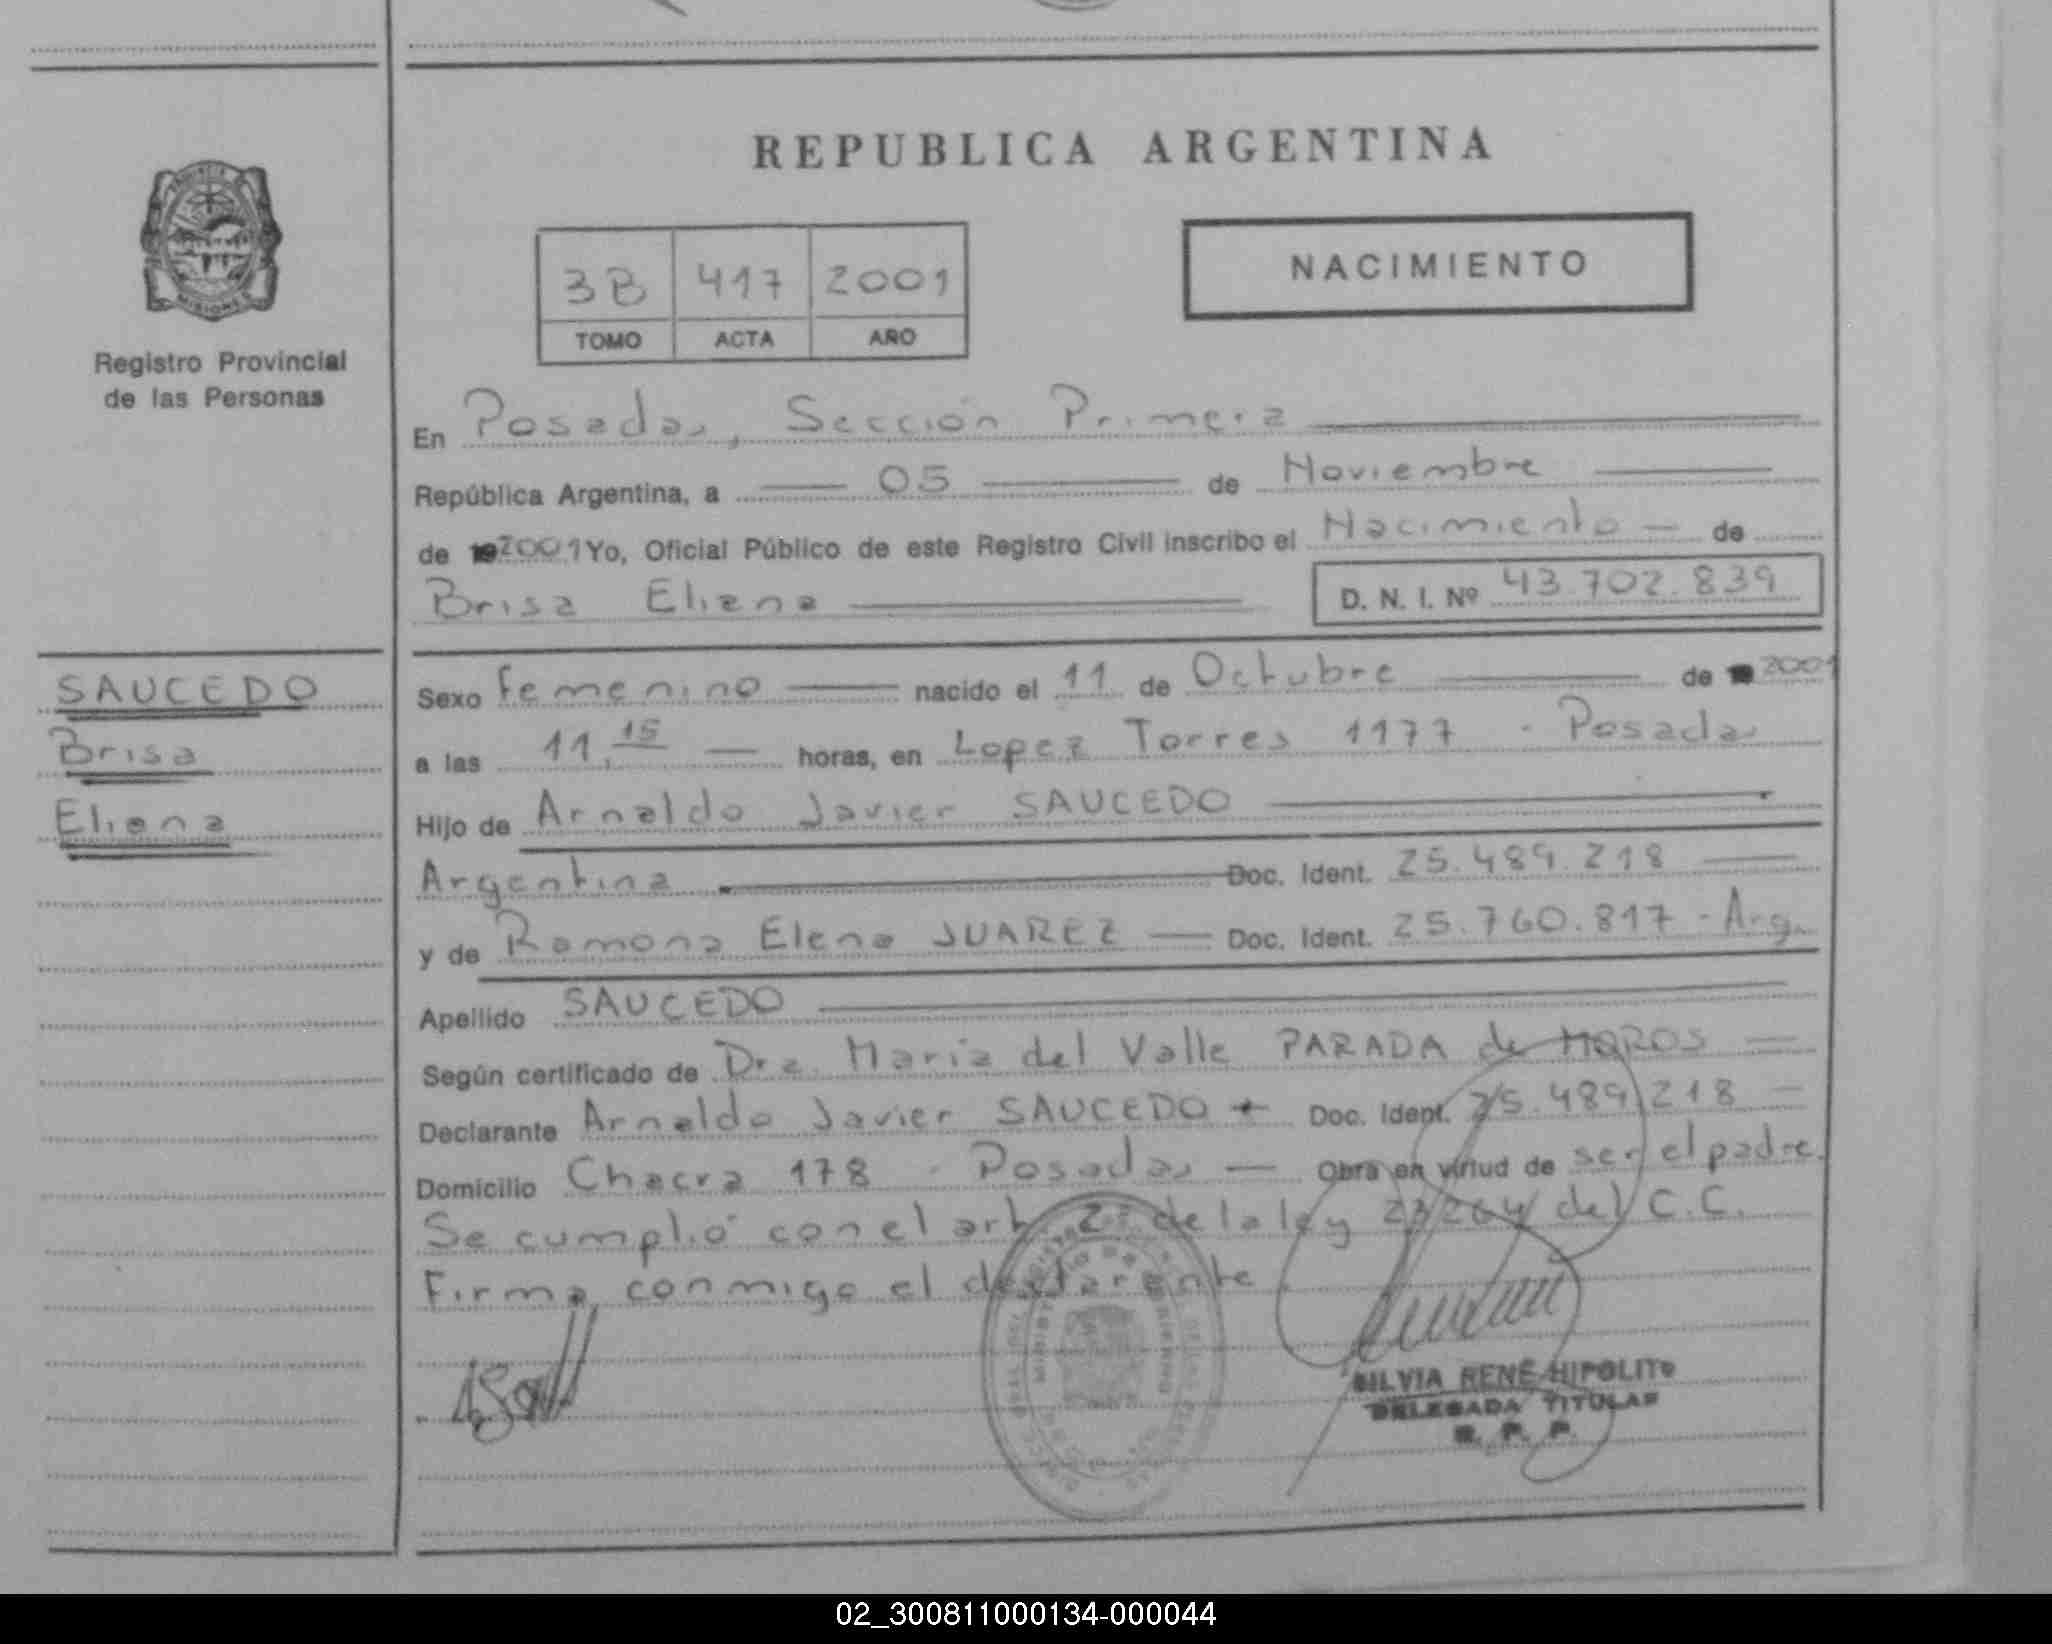 REPUBLICA ARGENTINA
3B 417 2001
TOMO ACTA AÑO
NACIMIENTO
MISIONES
Registro Provincial
de las Personas
En Posadas, Sección Primera
República Argentina, a 05 de Noviembre
de 192001 Yo, Oficial Público de este Registro Civil inscribo el Nacimiento de
Brisa Eliana D. N. I. Nº 43.702.839
SAUCEDO
Brisa
Eliana
Sexo femenino nacido el 11 de Octubre de 2001
a las 11,15 horas, en Lopez Torres 1177 - Posadas
Hijo de Arnaldo Javier SAUCEDO
Argentina Doc. Ident. 25.489.218
y de Ramona Elena JUAREZ Doc. Ident. 25.760.817 - Arg.
Apellido SAUCEDO
Según certificado de Dra. María del Valle PARADA de MOROS
Declarante Arnaldo Javier SAUCEDO Doc. Ident. 25.489.218
Domicilio Chacra 178 - Posadas Obra en virtud de ser el padre.
Se cumplió con el art. 2º de la ley 23264 del C.C.
Firma conmigo el declarante
SILVIA RENÉ HIPOLITO
DELEGADA TITULAR
R. P. P.
02_300811000134-000044